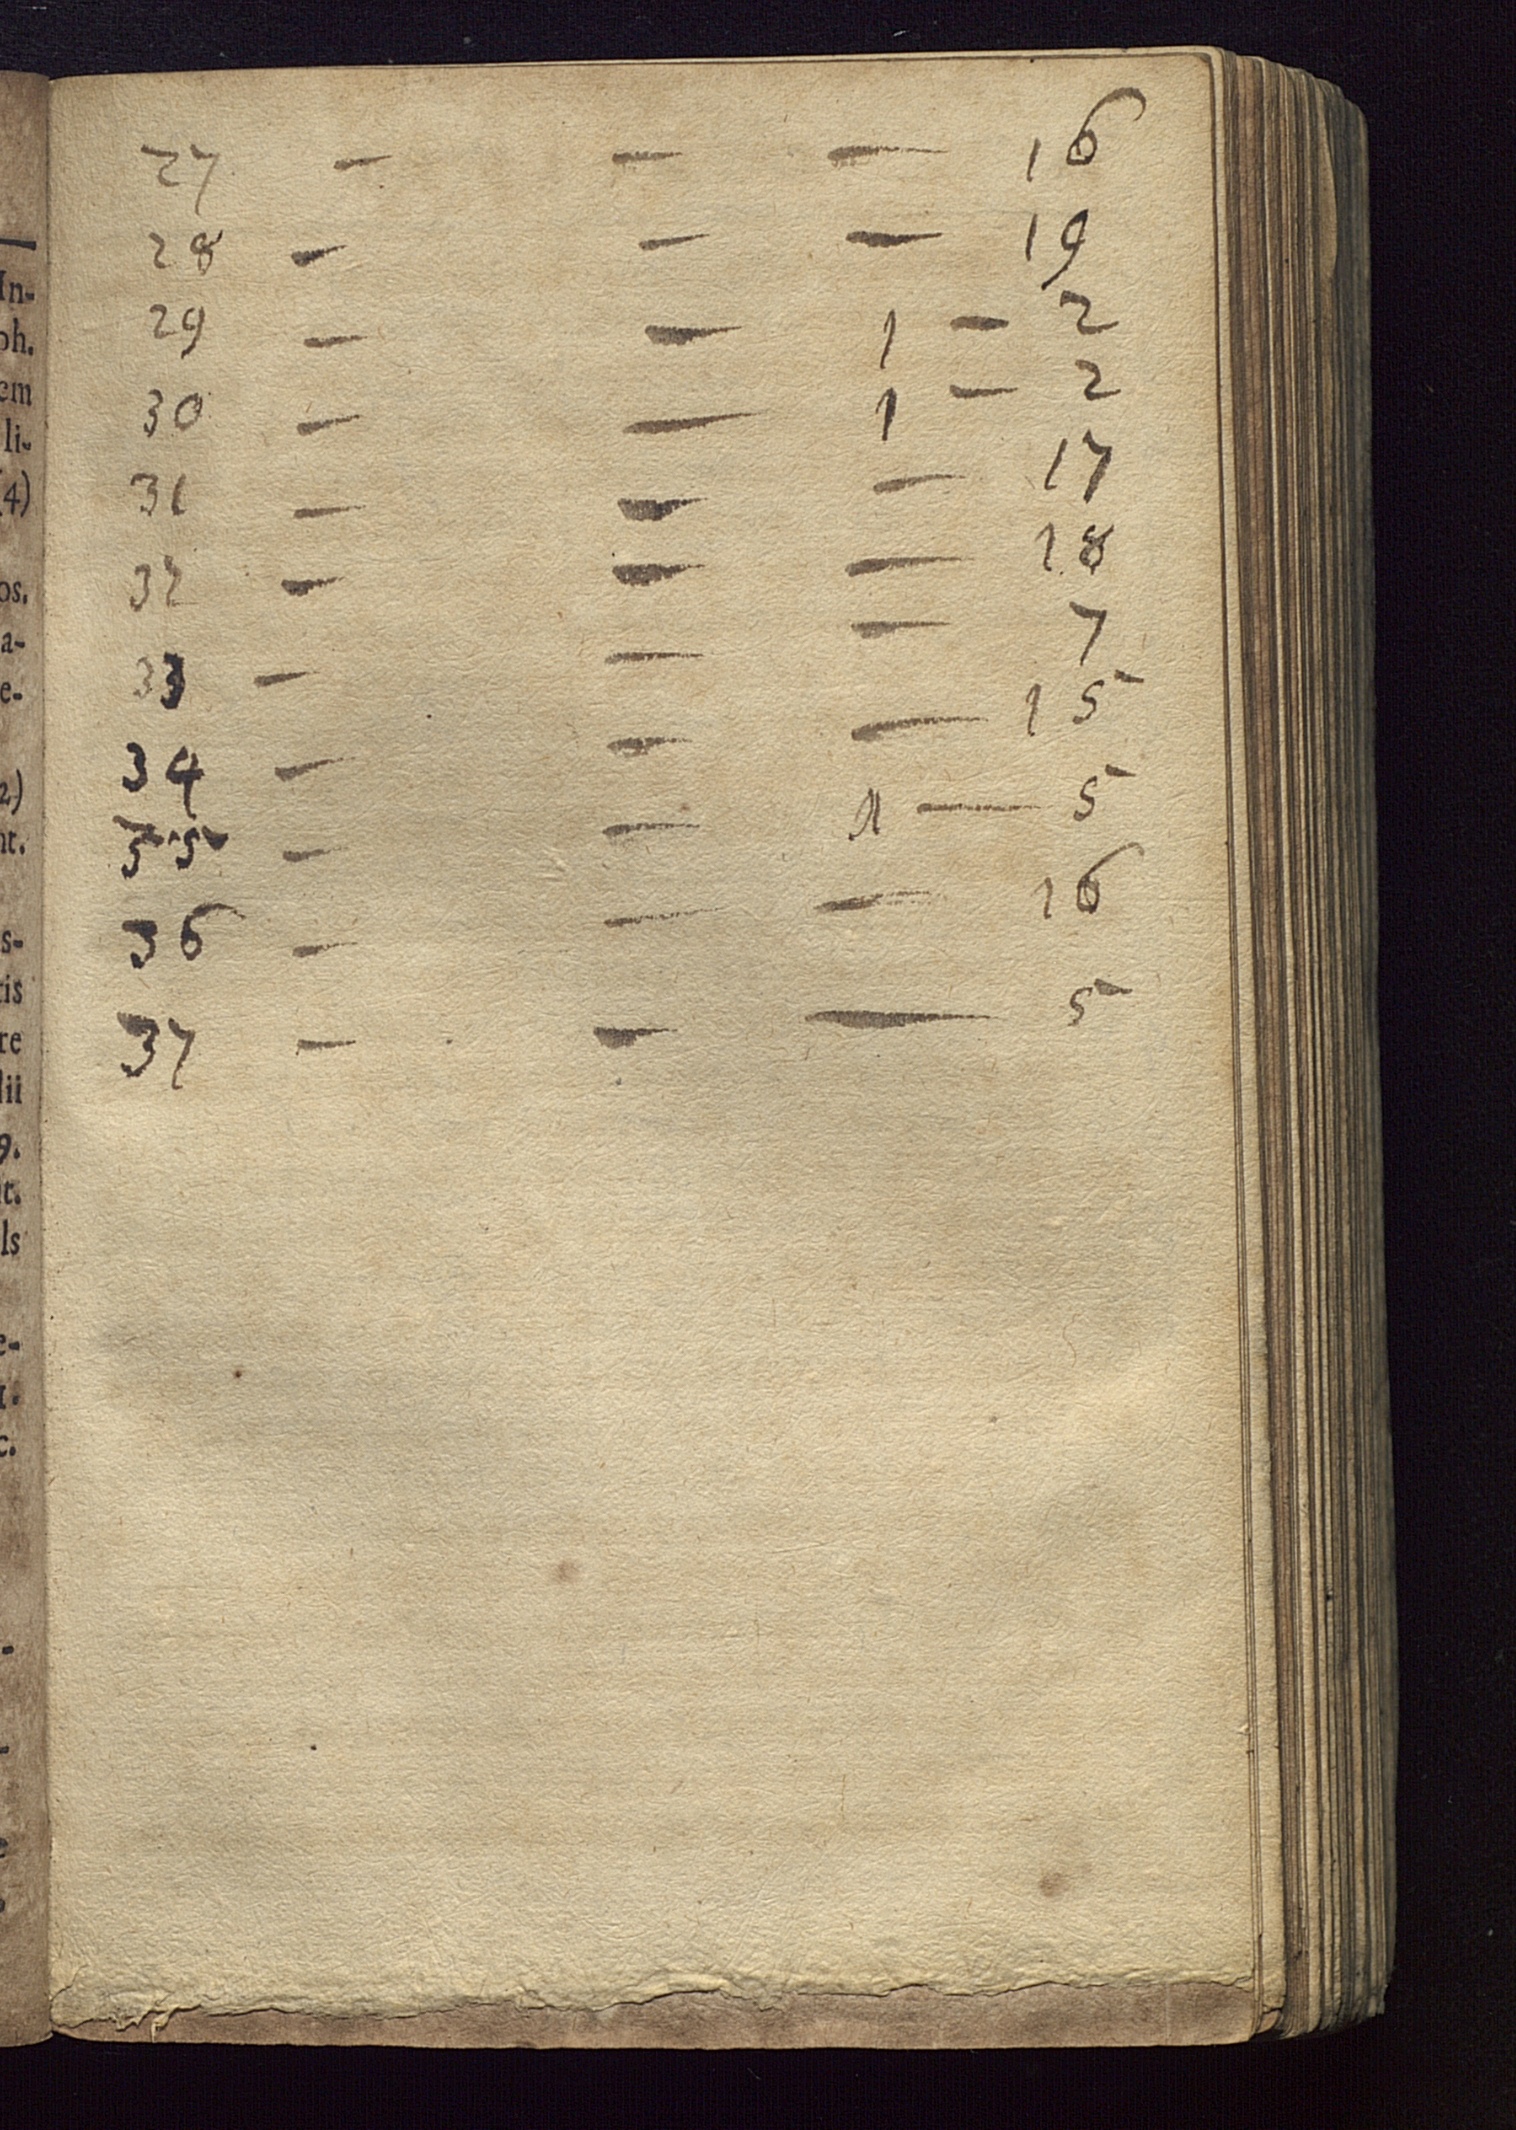 27 — — — 16
28 — — — 19
29 — — 1 — 2
30 — — 1 — 2
31 — — — 17
32 — — — 18
33 — — — 7
34 — — — 15
35 — — 1 — 5
36 — — — 16
37 — — — 5
In-
oh.
em
li-
(4)
os.
a-
e-
2)
nt.
s-
tis
re
lii
9.
it.
ls
e-
1.
c.
-
-
e